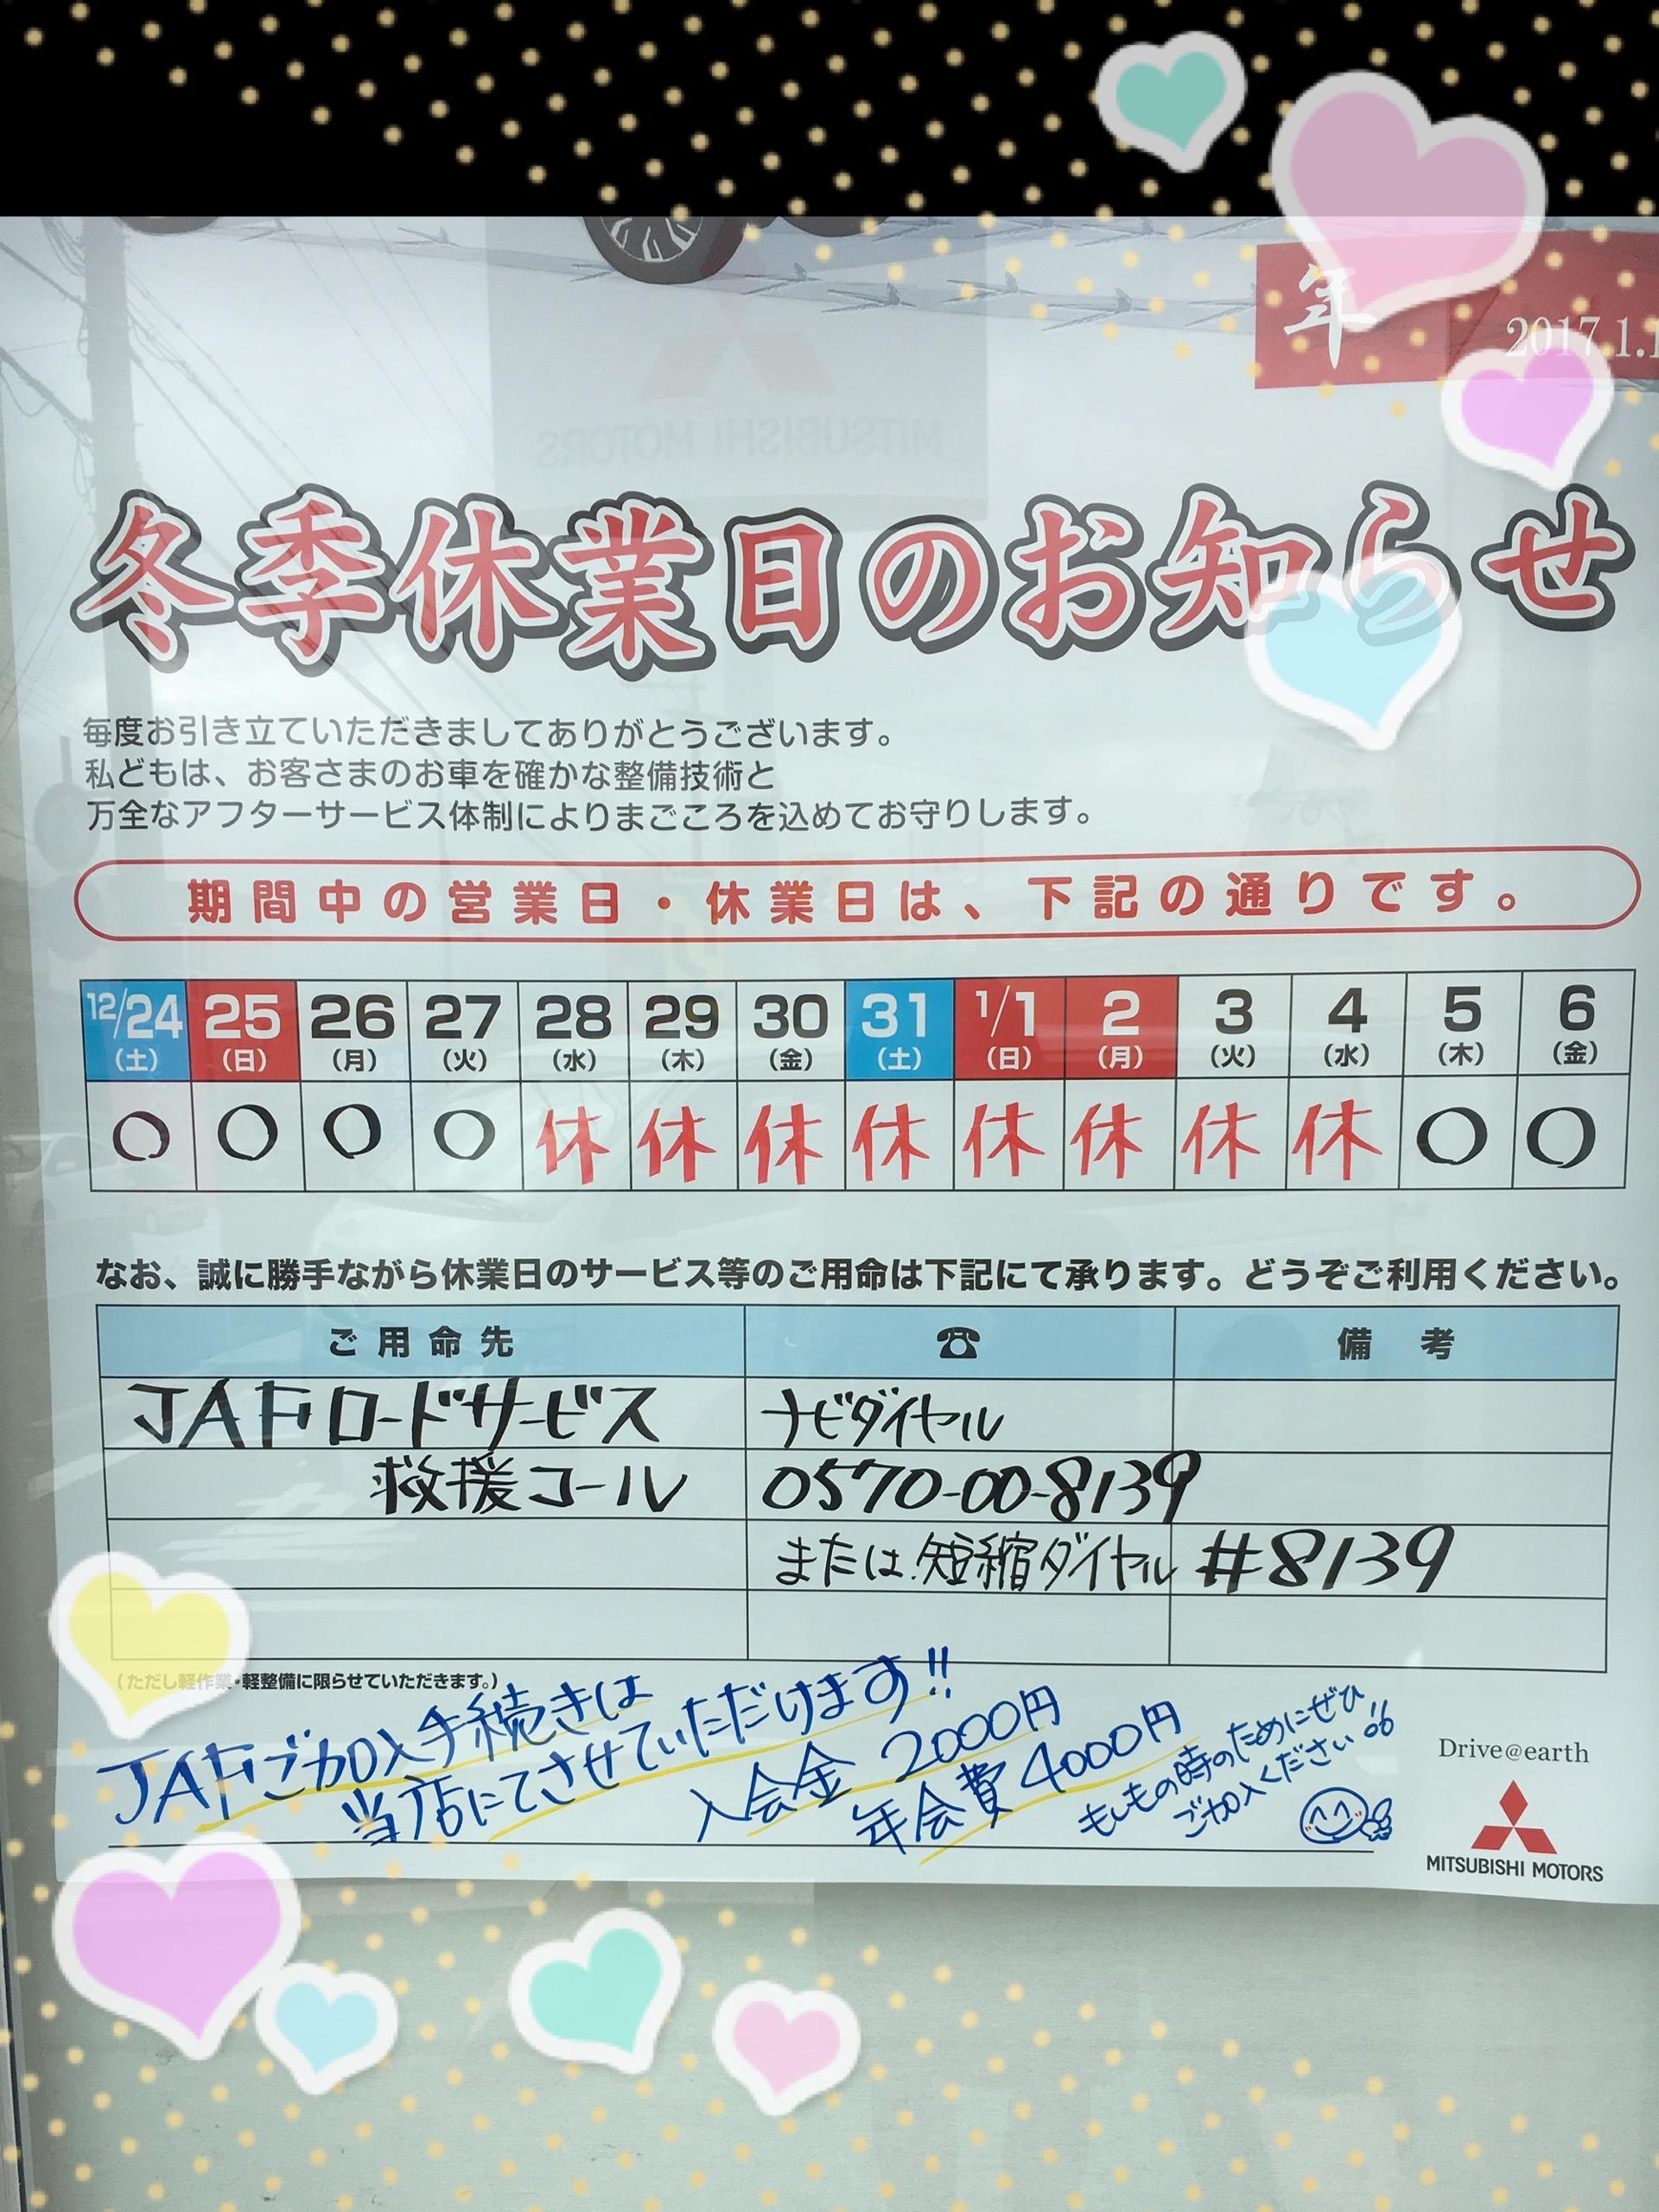 年
2017.1.1
MITSUBISHI MOTORS
冬季休業日のお知らせ
毎度お引き立ていただきましてありがとうございます。
私どもは、お客さまのお車を確かな整備技術と
万全なアフターサービス体制によりまごころを込めてお守りします。
期間中の営業日・休業日は、下記の通りです。
12/24 25 26 27 28 29 30 31 1/1 2 3 4 5 6
(土) (日) (月) (火) (水) (木) (金) (土) (日) (月) (火) (水) (木) (金)
○ ○ ○ ○ 休 休 休 休 休 休 休 休 ○ ○
なお、誠に勝手ながら休業日のサービス等のご用命は下記にて承ります。どうぞご利用ください。
ご用命先 ☎ 備考
JAFロードサービス ナビダイヤル
救援コール 0570-00-8139
または短縮ダイヤル #8139
(ただし軽作業・軽整備に限らせていただきます。)
JAFご加入手続きは
当店にてさせていただけます!!
入会金 2000円
年会費 4000円
もしもの時のためにぜひ
ご加入ください!!
Drive@earth
MITSUBISHI MOTORS